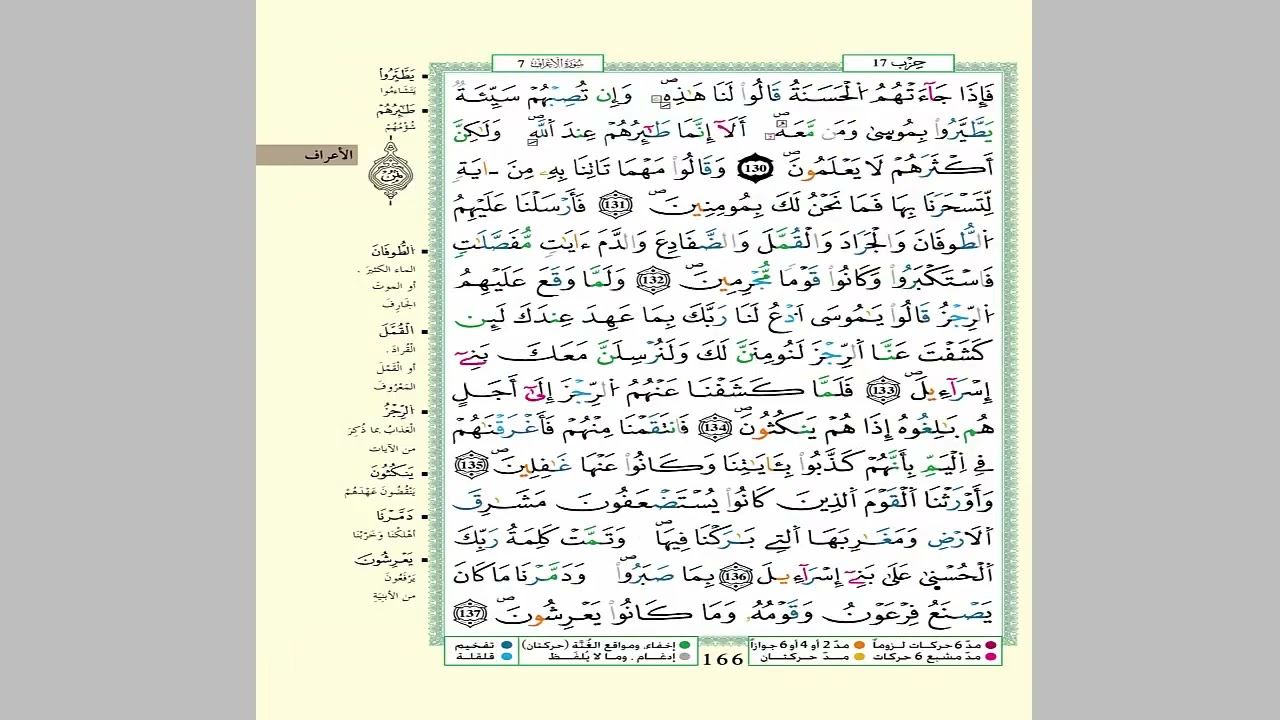 حِزْب 17
سُورَةُ الْأَعْرَافِ 7
فَإِذَا جَآءَتْهُمُ اُ۬لْحَسَنَةُ قَالُواْ لَنَا هَٰذِهِۦۖ وَإِن تُصِبْهُمْ سَيِّئَةٞ
يَطَّيَّرُواْ بِمُوس۪يٰ وَمَن مَّعَهُۥٓۖ أَلَآ إِنَّمَا طَٰٓئِرُهُمْ عِندَ اَ۬للَّهِۖ وَلَٰكِنَّ
أَكْثَرَهُمْ لَا يَعْلَمُونَۖ 130 وَقَالُواْ مَهْمَا تَاتِنَا بِهِۦ مِنَ ـايَةٖ
لِّتَسْحَرَنَا بِهَا فَمَا نَحْنُ لَكَ بِمُومِنِينَۖ 131 فَأَرْسَلْنَا عَلَيْهِمُ
اُ۬لطُّوفَانَ وَالْجَرَادَ وَالْقُمَّلَ وَالضَّفَادِعَ وَالدَّمَ ءَايَٰتٖ مُّفَصَّلَٰتٖ
فَاسْتَكْبَرُواْ وَكَانُواْ قَوْماٗ مُّجْرِمِينَۖ 132 وَلَمَّا وَقَعَ عَلَيْهِمُ
اُ۬لرِّجْزُ قَالُواْ يَٰمُوسَى اَ۟دْعُ لَنَا رَبَّكَ بِمَا عَهِدَ عِندَكَ لَئِن
كَشَفْتَ عَنَّا اَ۬لرِّجْزَ لَنُومِنَنَّ لَكَ وَلَنُرْسِلَنَّ مَعَكَ بَنِےٓ
إِسْرَآءِيلَۖ 133 فَلَمَّا كَشَفْنَا عَنْهُمُ اُ۬لرِّجْزَ إِلَىٰٓ أَجَلٍ
هُم بَٰلِغُوهُ إِذَا هُمْ يَنكُثُونَۖ 134 فَانتَقَمْنَا مِنْهُمْ فَأَغْرَقْنَٰهُمْ
فِے اِ۬لْيَمِّ بِأَنَّهُمْ كَذَّبُواْ بِـَٔايَٰتِنَا وَكَانُواْ عَنْهَا غَٰفِلِينَۖ 135
وَأَوْرَثْنَا اَ۬لْقَوْمَ اَ۬لذِينَ كَانُواْ يُسْتَضْعَفُونَ مَشَٰرِقَ
اَ۬لَارْضِ وَمَغَٰرِبَهَا اَ۬لتِے بَٰرَكْنَا فِيهَاۖ وَتَمَّتْ كَلِمَةُ رَبِّكَ
اَ۬لْحُسْن۪يٰ عَلَىٰ بَنِےٓ إِسْرَآءِيلَ 136 بِمَا صَبَرُواْۖ وَدَمَّرْنَا مَا كَانَ
يَصْنَعُ فِرْعَوْنُ وَقَوْمُهُۥ وَمَا كَانُواْ يَعْرِشُونَۖ 137
يَطَّيَّرُواْ
يَتَشَاءَمُوا
طَٰٓئِرُهُمْ
شُؤْمُهُمْ
الأعراف
ثمن
الطُّوفَانَ
الماء الكثيرَ .
أو الموتَ
الجَارِفَ
الْقُمَّلَ
القُرادَ .
أو القَمْلَ
المَعْرُوفَ
الرِّجْزُ
العَذَابُ بما ذُكِرَ
من الآيات
يَنكُثُونَ
يَنْقُضُونَ عَهْدَهُمْ
دَمَّرْنَا
أهْلَكْنَا وَخَرَّبْنَا
يَعْرِشُونَ
يَرْفَعُونَ
من الأبنِيَةِ
مدّ 6 حركات لـزومـاً
مدّ 2 أو 4 أو 6 جوازاً
مدّ مشبع 6 حركات
مـدّ حـركتـان
166
إخفاء، ومواقع الغُنَّة (حركتان)
إدغـام ، ومـا لا يُلفَـظ
تفخـيم
قلقلـة